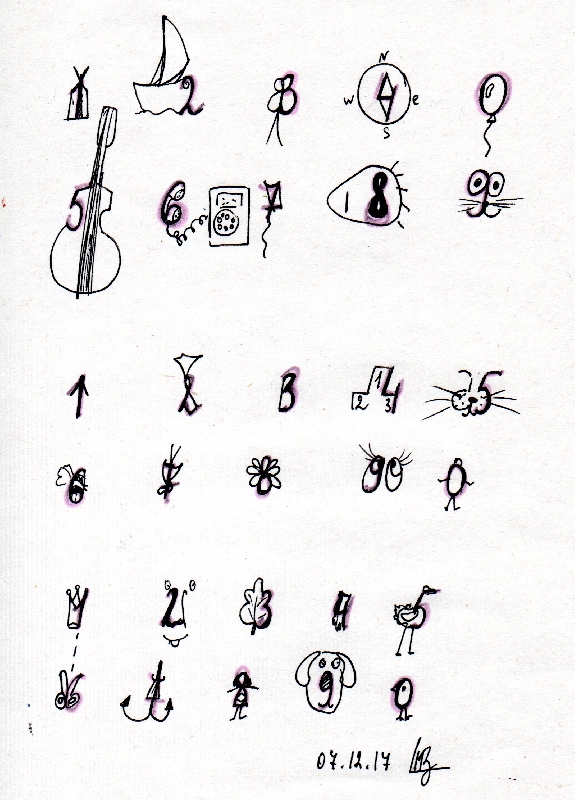 N
1 2 3 W 4 e 0
S
5 6 7 8 9
1 2 3 2 1 3 4 5
6 7 8 9 0
1 2 3 4 5
6 7 8 9 0
07.12.17